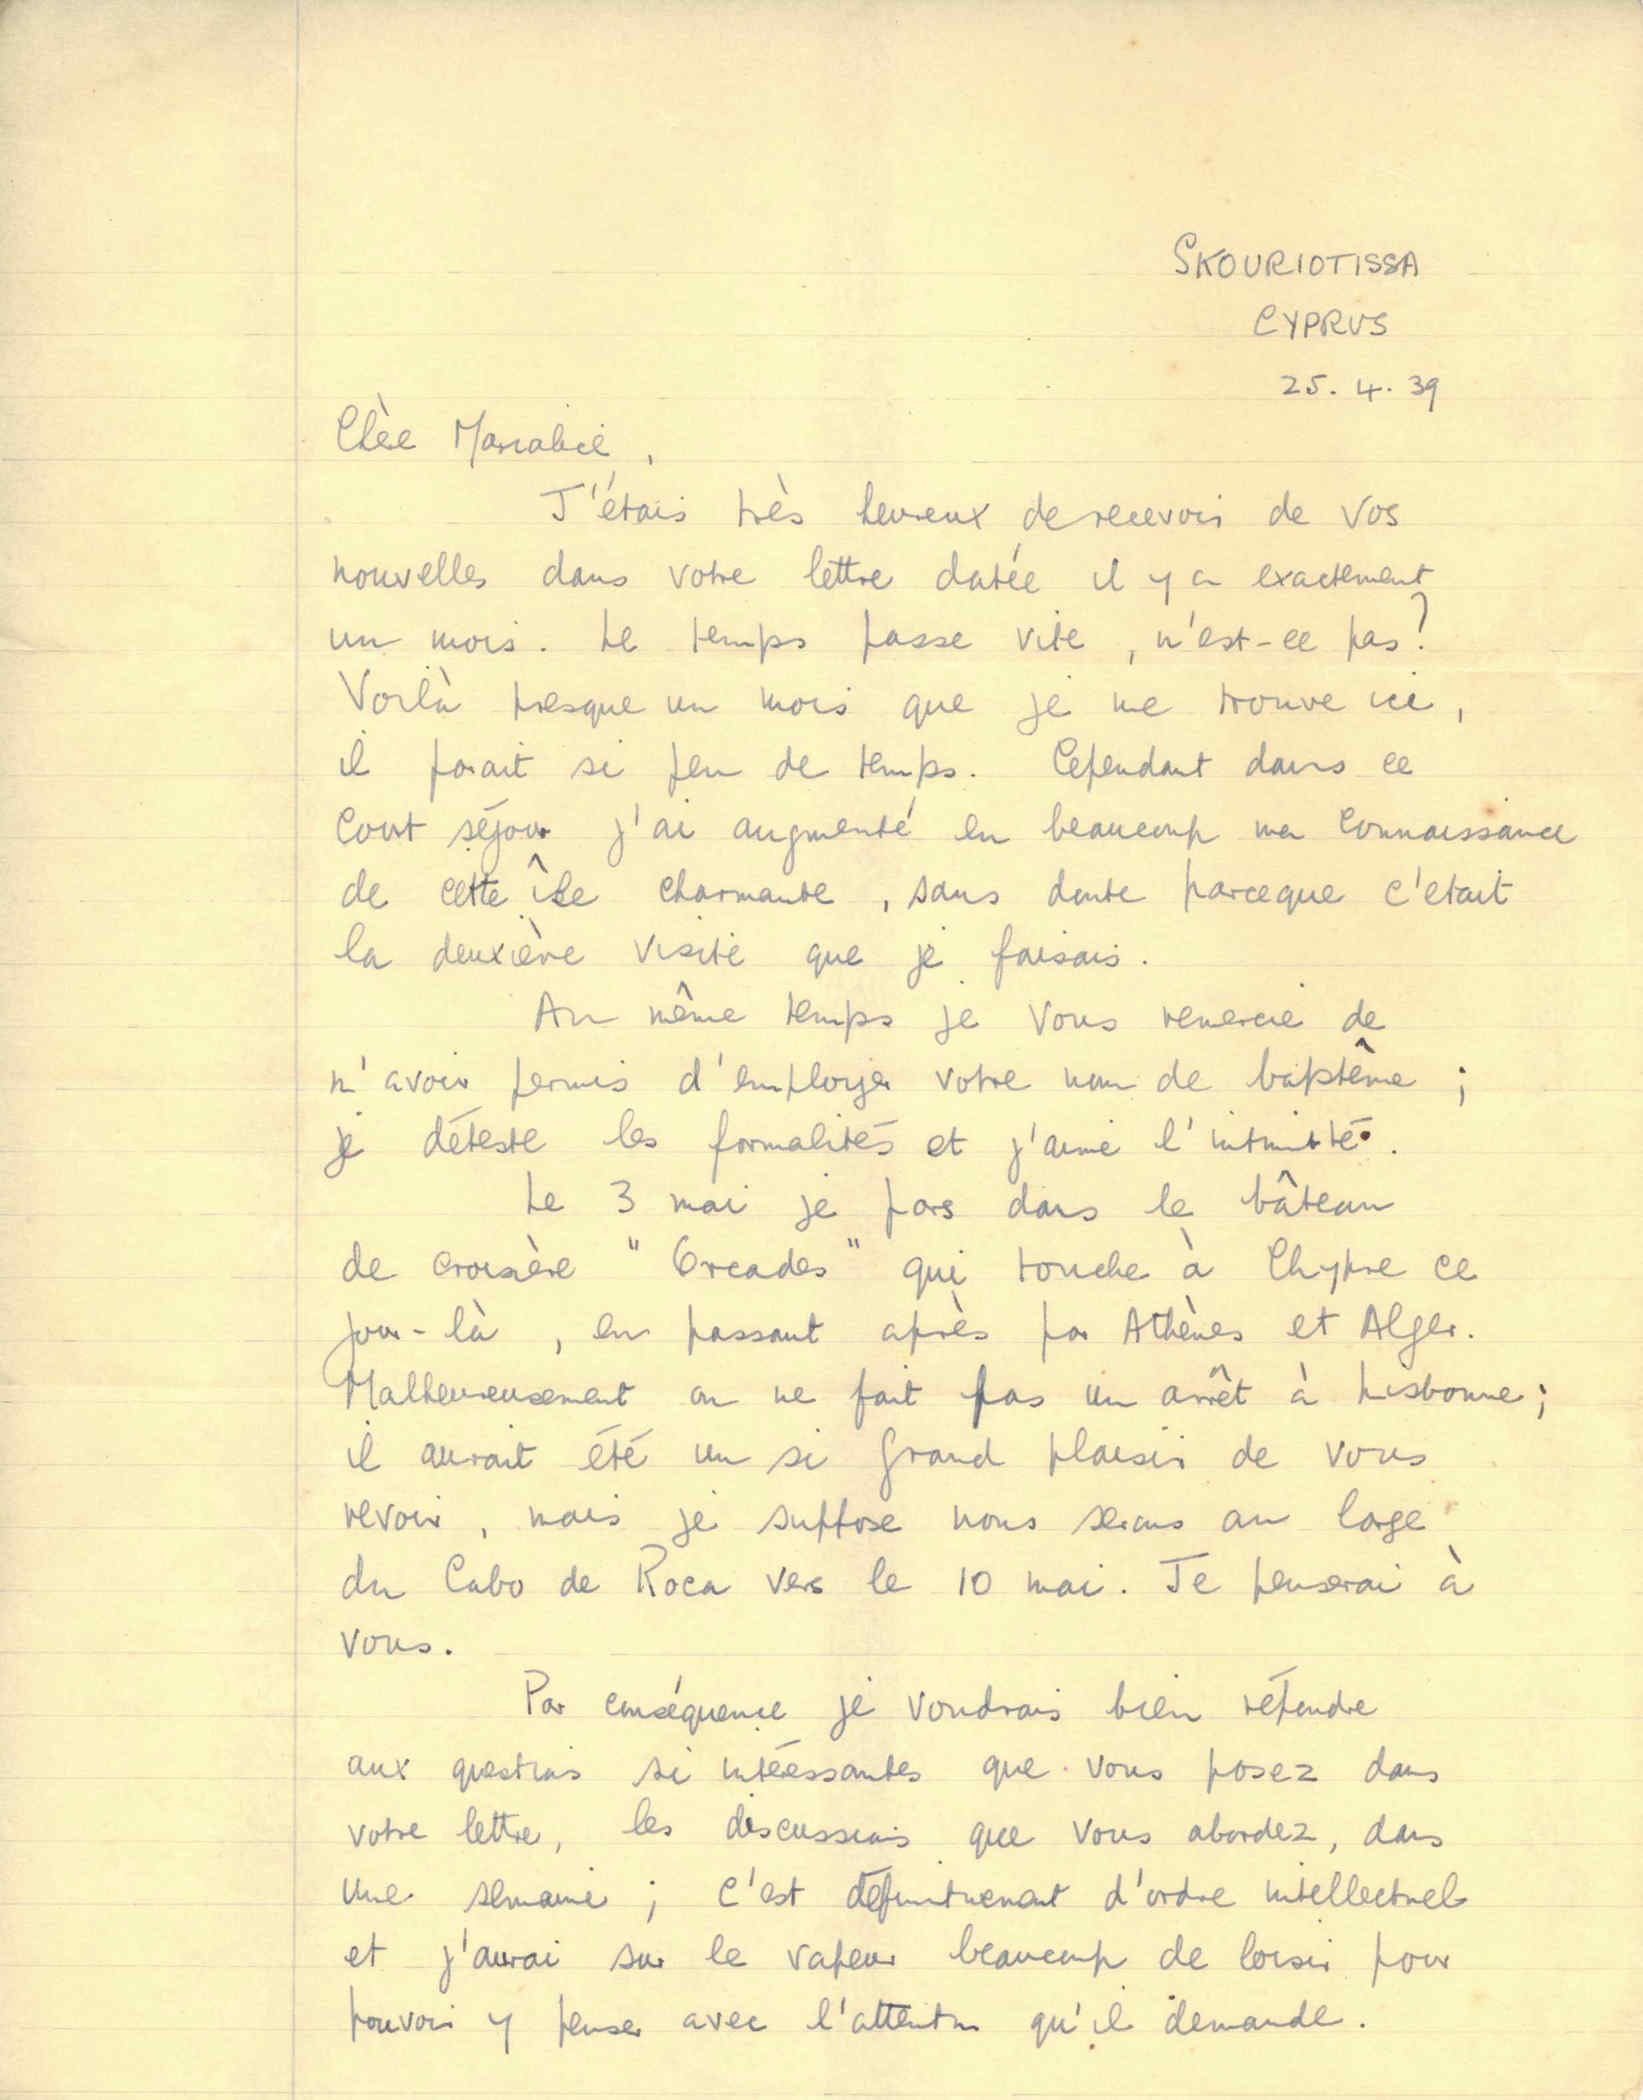 SKOURIOTISSA
CYPRUS
25. 4. 39
Chère Marialice,
J'étais très heureux de recevoir de vos
nouvelles dans votre lettre datée il y a exactement
un mois. Le temps passe vite, n'est-ce pas?
Voilà presque un mois que je me trouve ici,
il parait si peu de temps. Cependant dans ce
court séjour j'ai augmenté en beaucoup ma connaissance
de cette île charmante, sans doute parceque c'etait
la deuxième visite que je faisais.
Au même temps je vous remercie de
m'avoir permis d'employer votre nom de baptême;
je déteste les formalités et j'aime l'intimité.
Le 3 mai je pars dans le bâteau
de croisière "Orcades" qui touche à Chypre ce
jour-là, en passant après par Athènes et Alger.
Malheureusement on ne fait pas un arrêt à Lisbonne;
il aurait été un si grand plaisir de vous
revoir, mais je suppose nous serons au large
du Cabo de Roca vers le 10 mai. Je penserai à
vous.
Par conséquence je voudrais bien répondre
aux questions si intéressantes que vous posez dans
votre lettre, les discussions que vous abordez, dans
une semaine; c'est définitivement d'ordre intellectuel
et j'aurai sur le vapeur beaucoup de loisir pour
pouvoir y penser avec l'attention qu'il demande.